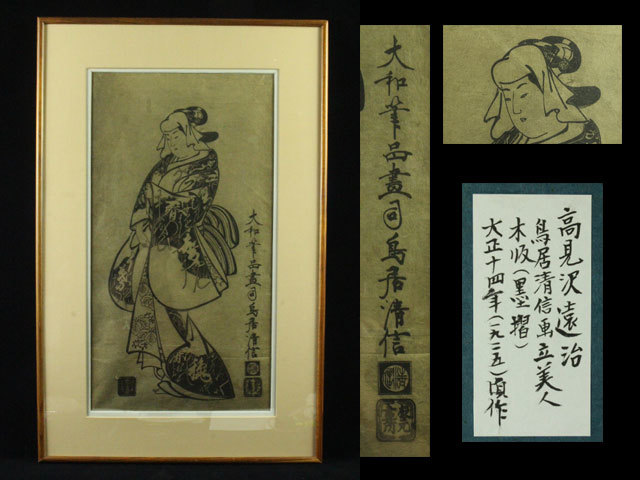 大和筆品畫司鳥居清信
大和筆品畫司鳥居清信
高見沢遠治
鳥居清信画立美人
木版(墨摺)
大正十四年(一九二五)頃作